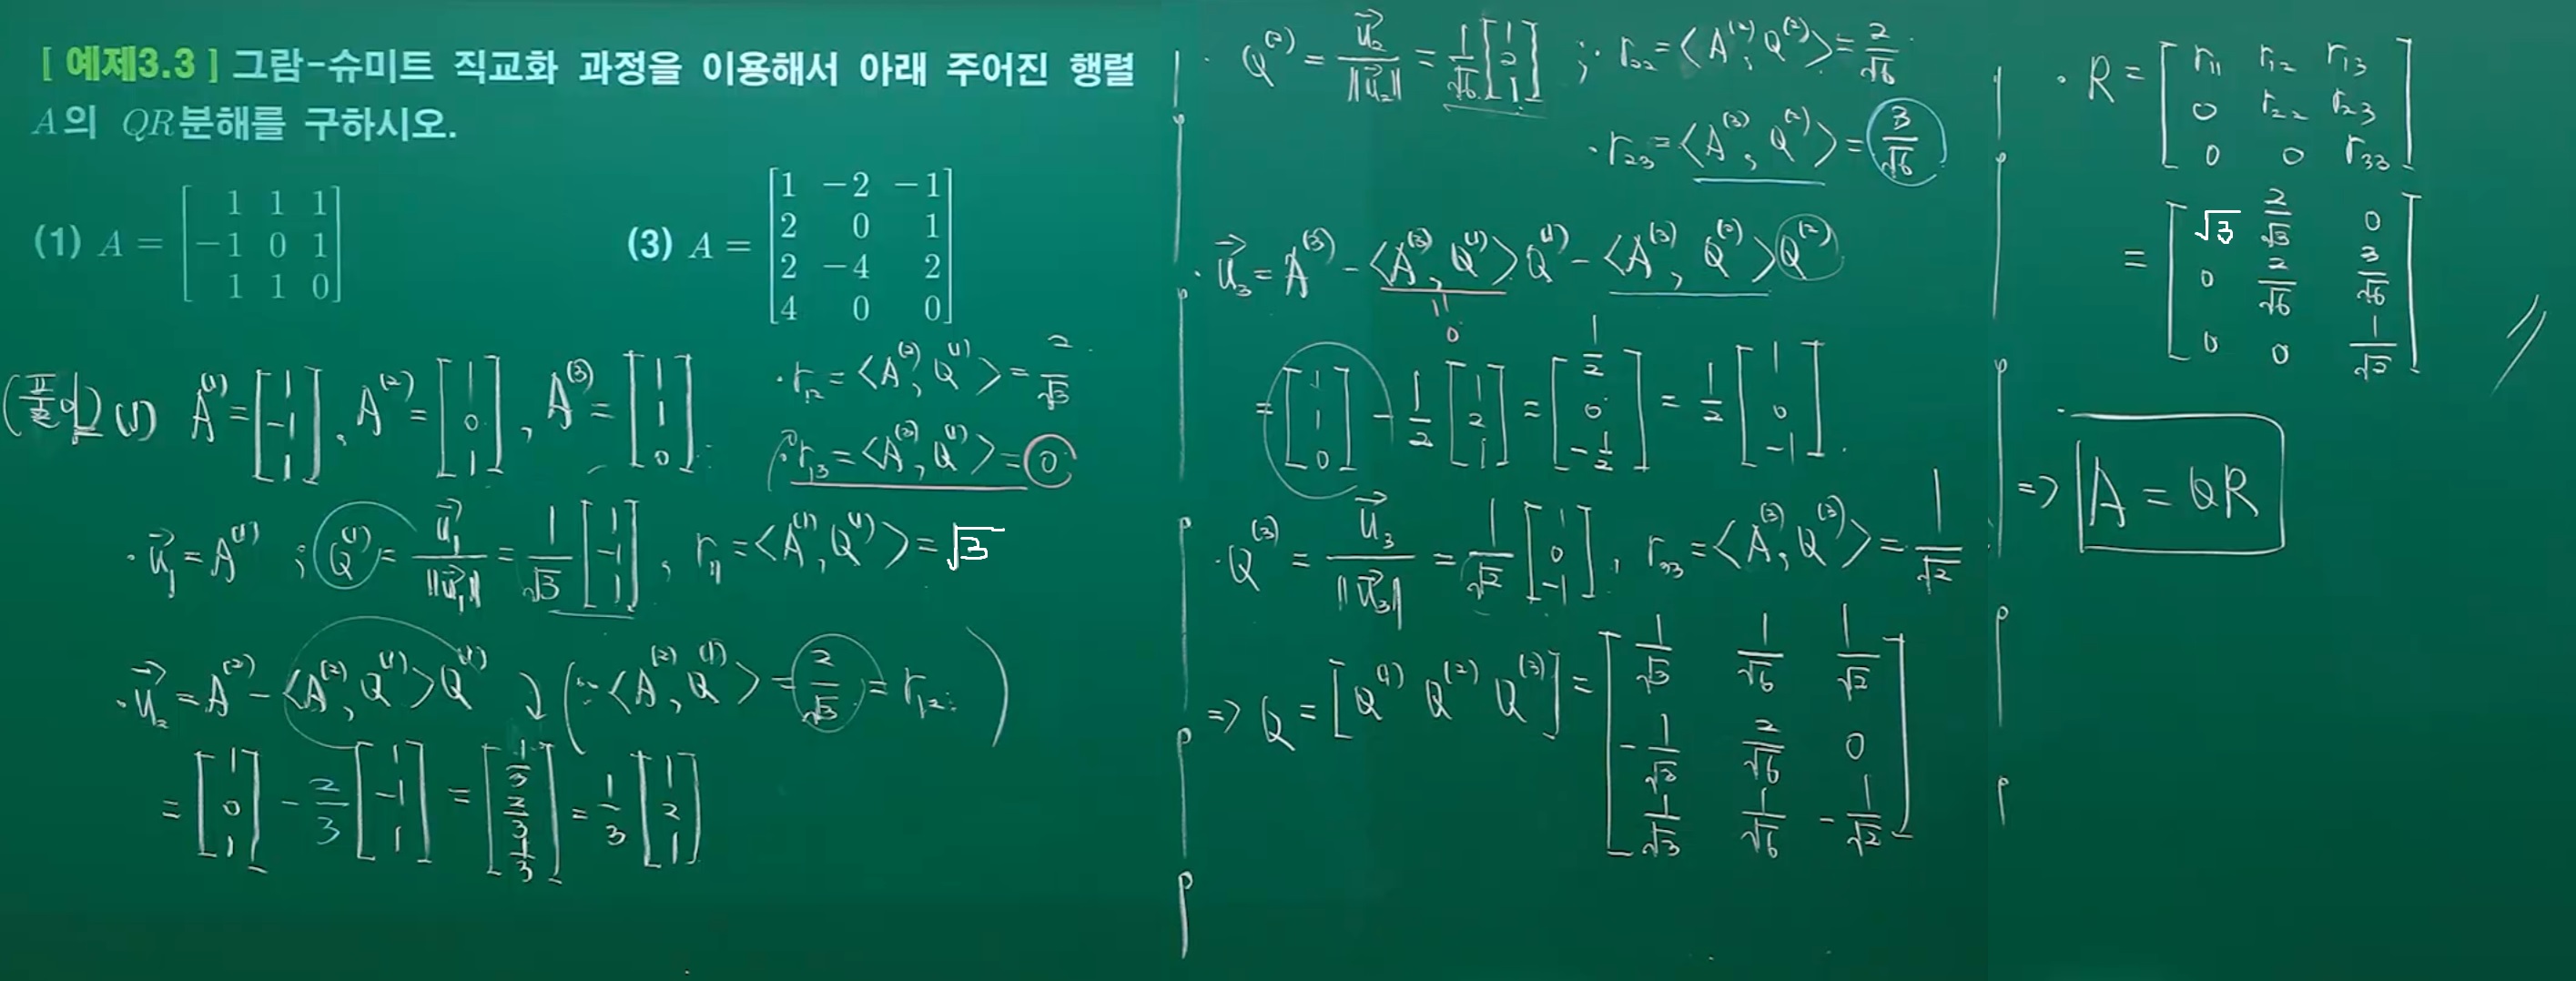 [ 예제3.3 ] 그람-슈미트 직교화 과정을 이용해서 아래 주어진 행렬
A의 QR분해를 구하시오.
(1) A = [1 1 1; -1 0 1; 1 1 0]
(3) A = [1 -2 -1; 2 0 1; 2 -4 2; 4 0 0]
(1) A⁽¹⁾ = [1; -1; 1], A⁽²⁾ = [1; 0; 1], A⁽³⁾ = [1; 1; 0]
· r₁₂ = <A⁽²⁾, Q⁽¹⁾> = 2/√3
r₁₃ = <A⁽³⁾, Q⁽¹⁾> = 0
· u⃗₁ = A⁽¹⁾ ; Q⁽¹⁾ = u⃗₁/‖u⃗₁‖ = 1/√3 [1; -1; 1], r₁₁ = <A⁽¹⁾, Q⁽¹⁾> = √3
· u⃗₂ = A⁽²⁾ - <A⁽²⁾, Q⁽¹⁾>Q⁽¹⁾ (∵ <A⁽²⁾, Q⁽¹⁾> = 2/√3 = r₁₂)
= [1; 0; 1] - 2/3 [1; -1; 1] = [1/3; 2/3; 1/3] = 1/3 [1; 2; 1]
· Q⁽²⁾ = u⃗₂/‖u⃗₂‖ = 1/√6 [1; 2; 1] ; · r₂₂ = <A⁽²⁾, Q⁽²⁾> = 2/√6
· r₂₃ = <A⁽³⁾, Q⁽²⁾> = 3/√6
· u⃗₃ = A⁽³⁾ - <A⁽³⁾, Q⁽¹⁾>Q⁽¹⁾ - <A⁽³⁾, Q⁽²⁾>Q⁽²⁾
0
= [1; 1; 0] - 1/2 [1; 2; 1] = [1/2; 0; -1/2] = 1/2 [1; 0; -1]
· Q⁽³⁾ = u⃗₃/‖u⃗₃‖ = 1/√2 [1; 0; -1], r₃₃ = <A⁽³⁾, Q⁽³⁾> = 1/√2
⇒ Q = [Q⁽¹⁾ Q⁽²⁾ Q⁽³⁾] = [1/√3 1/√6 1/√2; -1/√3 2/√6 0; 1/√3 1/√6 -1/√2]
· R = [r₁₁ r₁₂ r₁₃; 0 r₂₂ r₂₃; 0 0 r₃₃]
= [√3 2/√3 0; 0 2/√6 3/√6; 0 0 1/√2]
⇒ A = QR